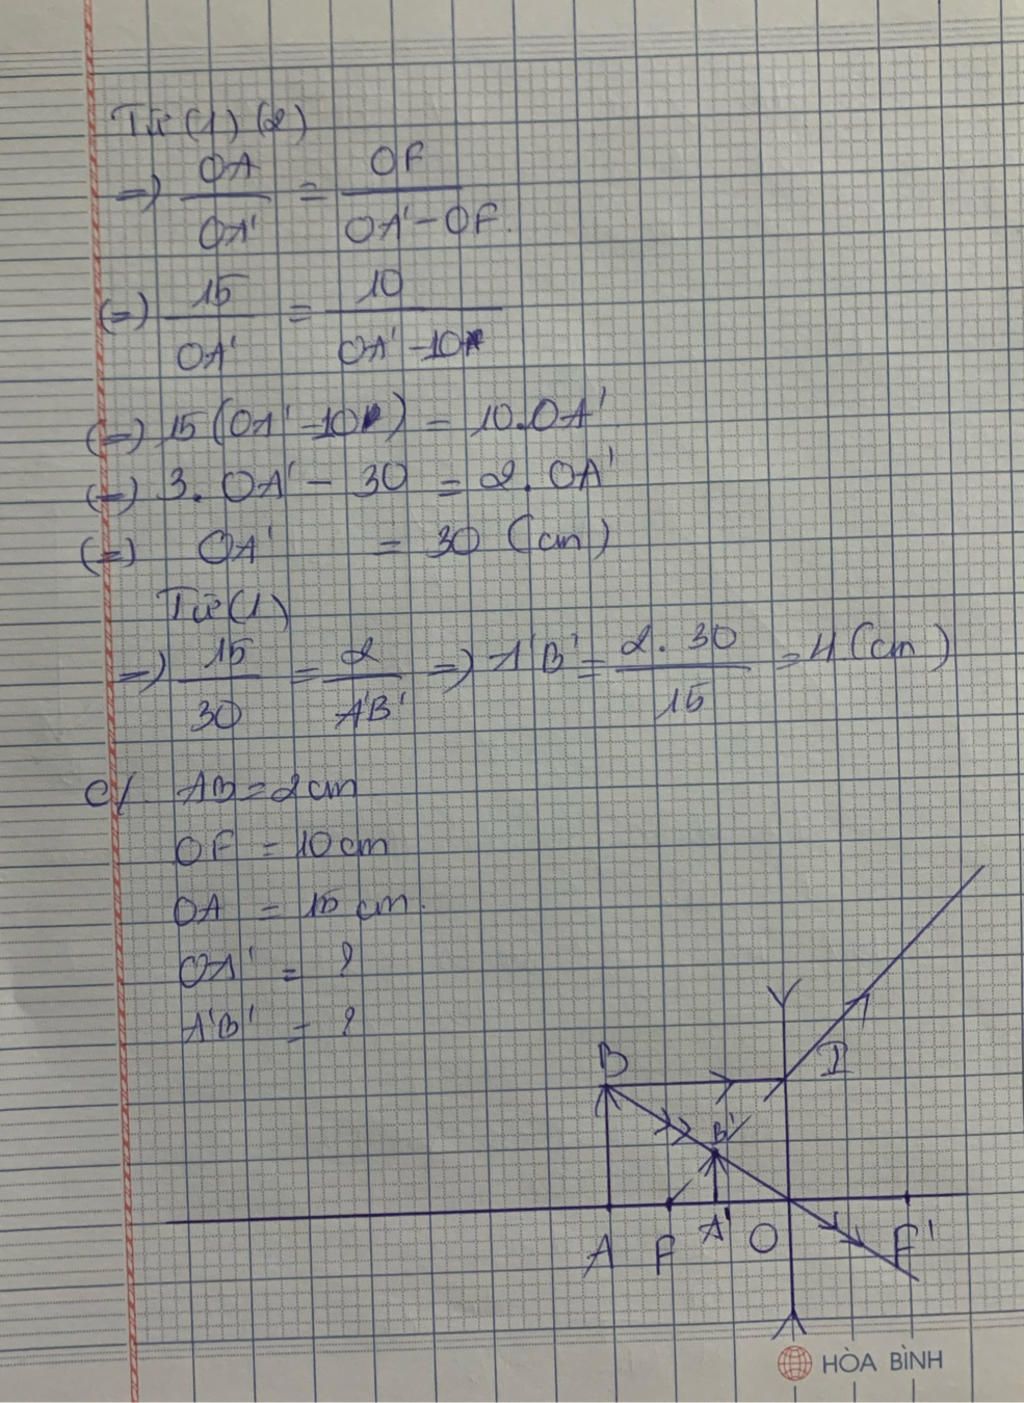 Từ (1) (2)
=) OA/OA' = OF/OA' - OF.
(=) 15/OA' = 10/OA' - 10
(=) 15 (OA' - 10) = 10.OA'
(=) 3. OA' - 30 = 2. OA'
(=) OA' = 30 (cm)
Từ (1)
=) 15/30 = 2/A'B' =) A'B' = 2. 30/15 = 4 (cm)
c/ AB = 2cm
OF = 10cm
OA = 15 cm.
OA' = ?
A'B' = ?
B I
B'
A F A' O F'
HÒA BÌNH